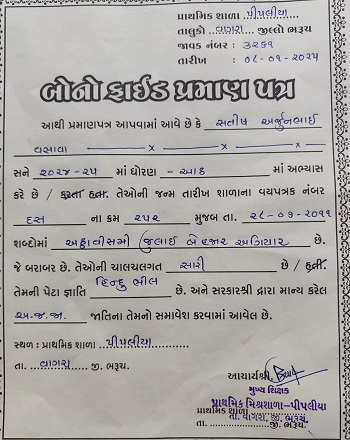 પ્રાથમિક શાળા પીપલીયા
તાલુકો વાગરા જીલ્લો ભરૂચ
જાવક નંબર : ૩૨૬૧
તારીખ : ૦૮-૦૧-૨૦૨૫
બોનોફાઈડ પ્રમાણ પત્ર
આથી પ્રમાણપત્ર આપવામાં આવે છે કે સતીષ અર્જુનભાઈ
વસાવા
સને ૨૦૨૪-૨૫ માં ધોરણ - આઠ માં અભ્યાસ
કરે છે / કરતા હતા. તેઓની જન્મ તારીખ શાળાના વયપત્રક નંબર
દસ ના ક્રમ ૨૫૨ મુજબ તા. ૨૮-૦૭-૨૦૧૧
શબ્દોમાં અઠ્ઠાવીસમી જુલાઈ બે હજાર અગિયાર છે.
જે બરાબર છે. તેઓની ચાલચલગત સારી છે / હતી.
તેમની પેટા જ્ઞાતિ હિન્દુ ભીલ છે. અને સરકારશ્રી દ્વારા માન્ય કરેલ
અ.જ.જા. જાતિના તેમનો સમાવેશ કરવામાં આવેલ છે.
સ્થળ : પ્રાથમિક શાળા પીપલીયા
તા. વાગરા જી. ભરૂચ.
આચાર્યશ્રી
મુખ્ય શિક્ષક
પ્રાથમિક મિશ્રશાળા-પીપલીયા
પ્રાથમિક શાળા
તા. વાગરા, જી. ભરૂચ.
તા. જી. ભરૂચ.